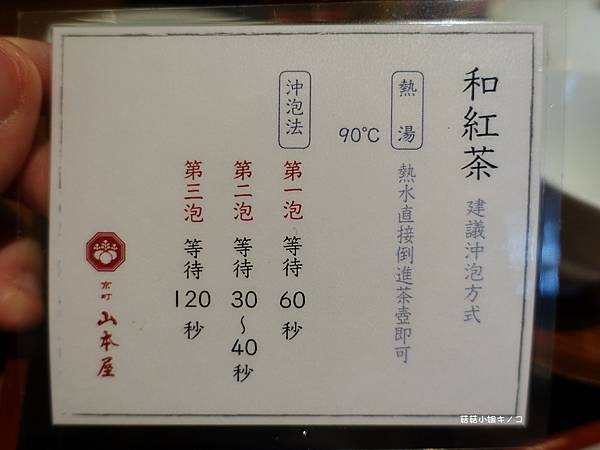 和紅茶 建議沖泡方式
熱湯 90℃
熱水直接倒進茶壺即可
沖泡法
第一泡 等待60秒
第二泡 等待30~40秒
第三泡 等待120秒
京町 山本屋
菇菇小姐キノコ